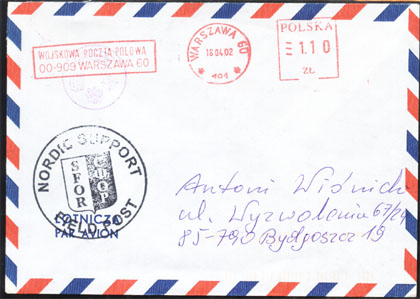 WOJSKOWA POCZTA POLOWA
00-909 WARSZAWA 60
WARSZAWA 60
18.04.02
POLSKA
1.10
ZŁ
NORDIC SUPPORT
SFOR
FIELD POST
LOTNICZA
PAR AVION
Antoni Wiśnich
ul. Wyzwolenia 67/24
85-790 Bydgoszcz 19